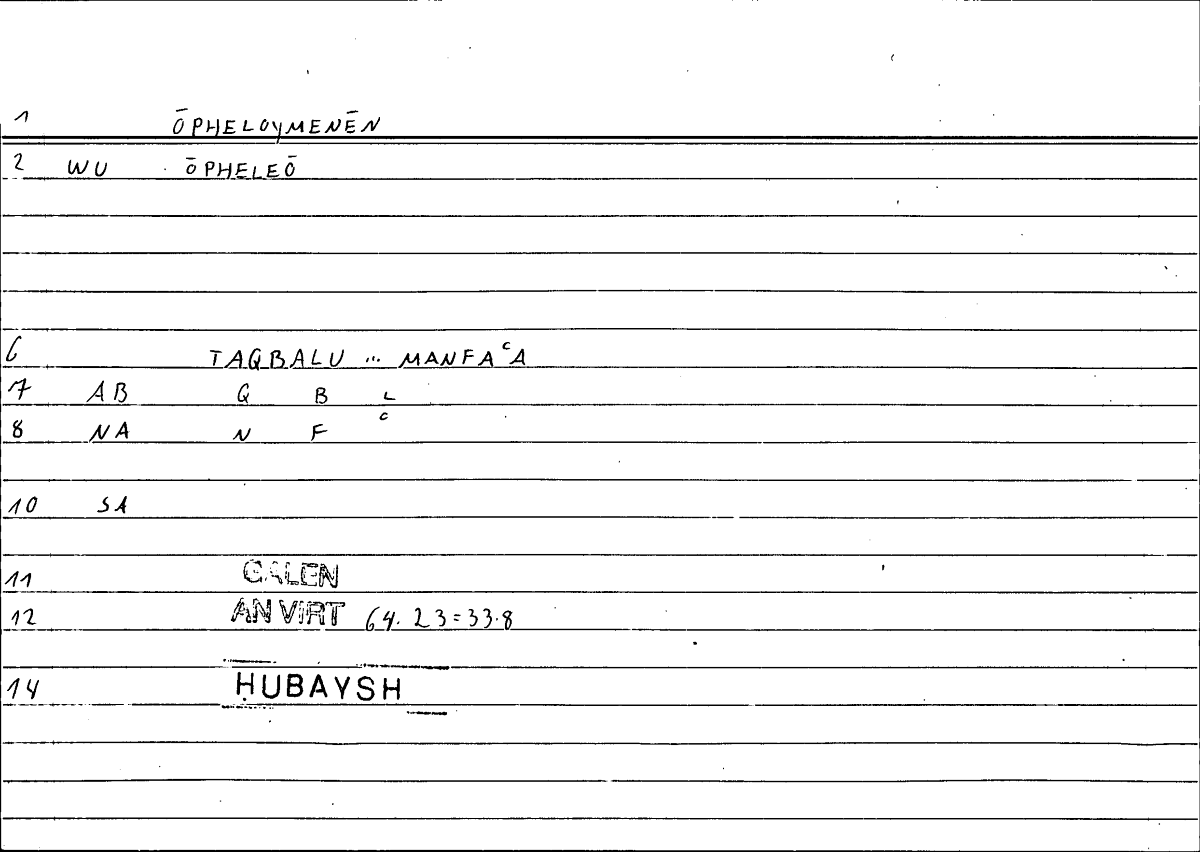 1 ŌPHELOYMENĒN
2 WU ŌPHELEŌ
6 TAQBALU ... MANFAᶜA
7 AB Q B L
8 NA N F ᶜ
10 SA
11 GALEN
12 AN VIRT 64.23=33.8
14 ḤUBAYSH